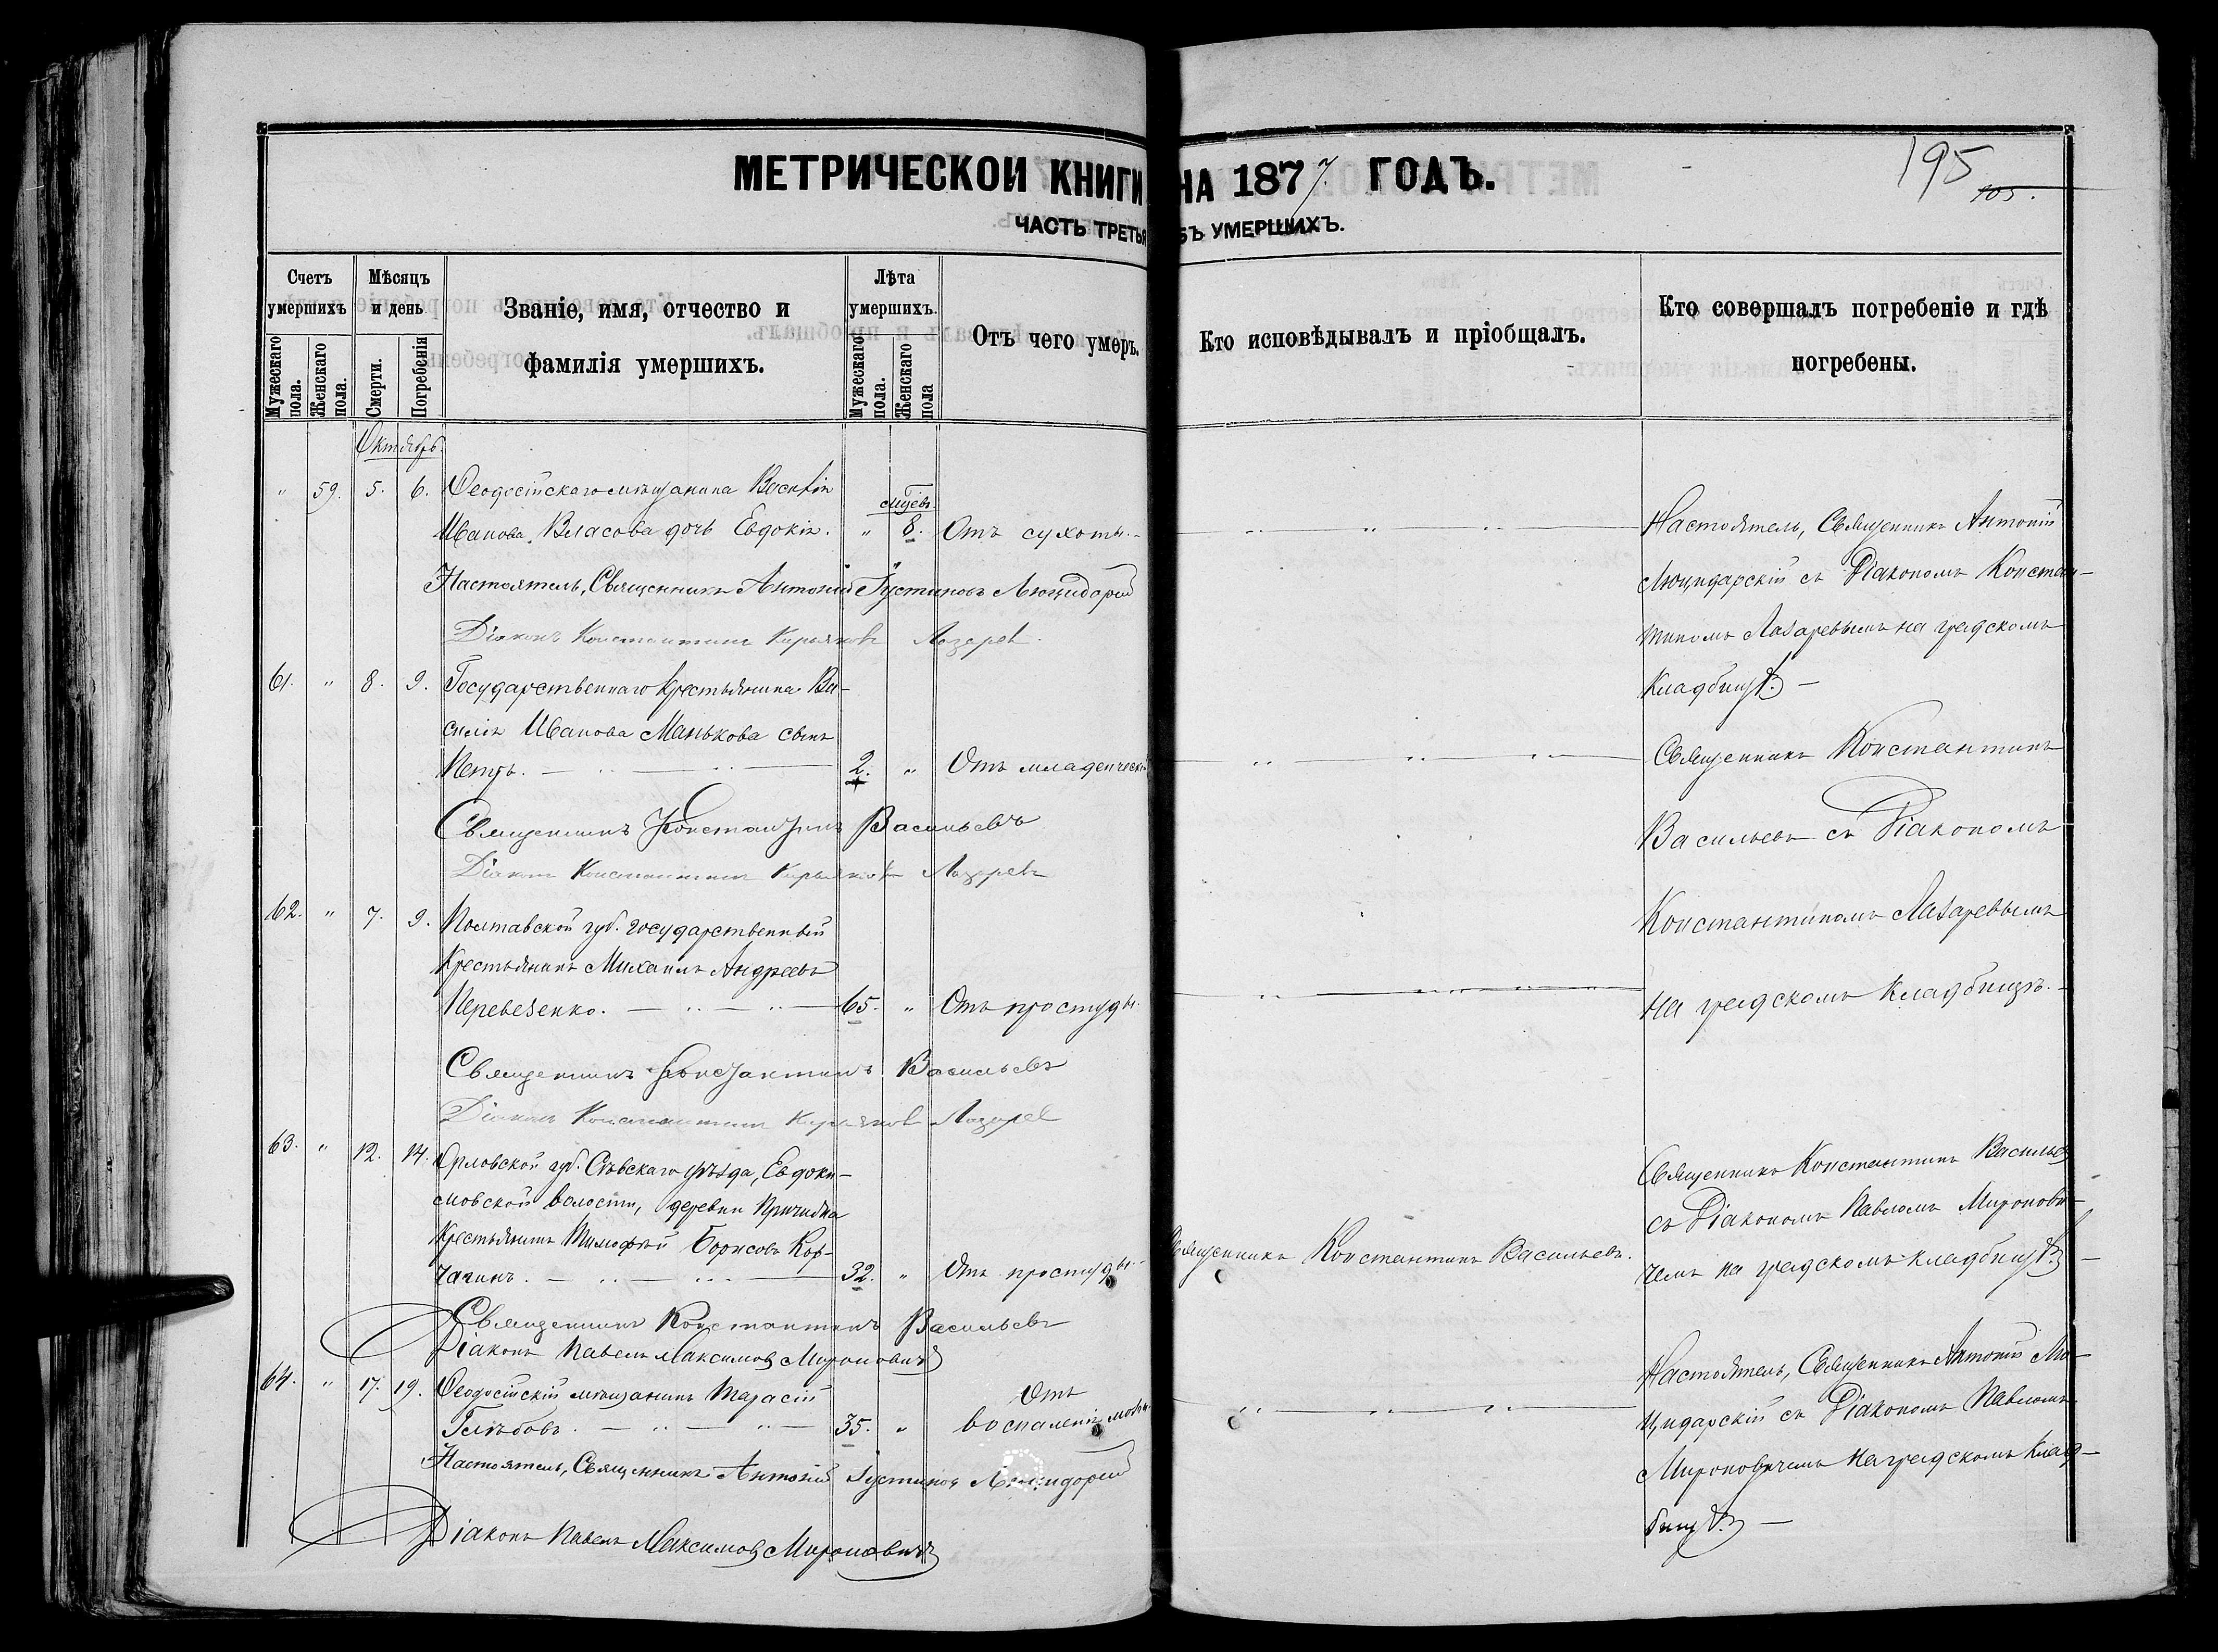 МЕТРИЧЕСКОЙ КНИГИ НА 1877 ГОДЪ.
195
105.
ЧАСТЬ ТРЕТЬЯ БЪ УМЕРШИХЪ.
Счетъ умершихъ
Мужескаго пола.
Женскаго пола.
Мѣсяцъ и день
Смерти.
Погребенія
Званіе, имя, отчество и фамилія умершихъ.
Лѣта умершихъ.
Мужескаго пола.
Женскаго пола
Отъ чего умеръ.
Кто исповѣдывалъ и пріобщалъ.
Кто совершалъ погребеніе и гдѣ погребены.
Октябрь
" 59. 5. 6. Ѳеодосійскаго мѣщанина Василія
Иванова Власова дочь Евдокія. " 8. Отъ сухоты.
Настоятель, Священникъ Антоній Іустиновъ Люцидарскій
Діаконъ Константинъ Кирьяковъ Лазаревъ
Настоятель, Священникъ Антоній
Люцидарскій съ Діакономъ Констан-
тиномъ Лазаревымъ на градскомъ
Кладбищѣ. —
61. " 8. 9. Государственнаго Крестьянина Ва-
силія Иванова Манькова сынъ
Петръ. 2. " Отъ младенческ
Священникъ Константинъ Васильевъ
Діаконъ Константинъ Кирьяковъ Лазаревъ
Священникъ Константинъ
Васильевъ съ Діакономъ
Константиномъ Лазаревымъ
на градскомъ Кладбищѣ.
62. " 7. 9. Полтавской губ. государственный
Крестьянинъ Михаилъ Андреевъ
Перевезенко. 65. " Отъ простуды.
Священникъ Константинъ Васильевъ
Діаконъ Константинъ Кирьяковъ Лазаревъ
63. " 12. 14. Орловской губ. Сѣвскаго уѣзда, Евдоки-
мовской волости, деревни
Крестьянинъ Тимофей Борисовъ Кор-
чагинъ. 32. " Отъ простуды.
Священникъ Константинъ Васильевъ.
Священникъ Константинъ Васильевъ
Діаконъ Павелъ Максимовъ Мироновичъ
Священникъ Константинъ Васильевъ
съ Діакономъ Павломъ Миронови-
чемъ на градскомъ кладбищѣ. —
64. " 17. 19. Ѳеодосійскій мѣщанинъ Тарасій
Глѣбовъ. 35. " Отъ воспаленія
Настоятель, Священникъ Антоній Іустиновъ Люцидарскій
Діаконъ Павелъ Максимовъ Мироновичъ
Настоятель, Священникъ Антоній Лю-
цидарскій съ Діакономъ Павломъ
Мироновичемъ на градскомъ Клад-
бищѣ. —